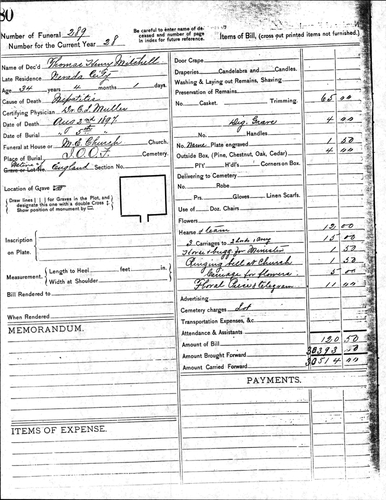 80
Number of Funeral 289
Number for the Current Year 28
Be carefully to enter name of deceased and number of page in index for future reference.
Items of Bill, (cross out printed items not furnished.)
Name of Dec'd Thomas Henry Mitchell
Late Residence Nevada City
Age, 34 years 4 months 1 days.
Cause of Death Hepatitis
Certifying Physician Dr. C. L. Muller
Date of Death Aug 3rd 1897
Date of Burial " 5th "
Funeral at House or M. E. Church Church.
Place of Burial I.O.O.F. Cemetery.
Grave or Lot No. England Section No.
Location of Grave
Draw lines for Graves in the Plot, and designate this one with a double Cross
Show position of monument by
Inscription
on Plate.
Measurement, Length to Heel feet in.
Width at Shoulder
Bill Rendered to
When Rendered
MEMORANDUM.
ITEMS OF EXPENSE.
Door Crape
Draperies Candelabra and Candles.
Washing & Laying out Remains, Shaving
Preservation of Remains
No. Casket. Trimming. 65 00
Dig. Grave 4 00
No. Handles
No. Name Plate engraved 1 50
Outside Box (Pine, Chestnut, Oak, Cedar) 4 00
PIY H'd'l's Corners on Box
Delivering to Cemetery
No. Robe
Prs. Gloves Linen Scarfs.
Use of Doz. Chairs
Flowers
Hearse & team 12 00
3 Carriages to 15 00
Horse & buggy for Minister 1 50
Ringing bell at Church 1 50
Carriage for flowers 5 00
Floral telegram 11 00
Advertising
Cemetery charges Lot
Transportation Expenses, &c.
Attendance & Assistants
Amount of Bill 120 50
Amount Brought Forward 30393 50
Amount Carried Forward 30514 00
PAYMENTS.